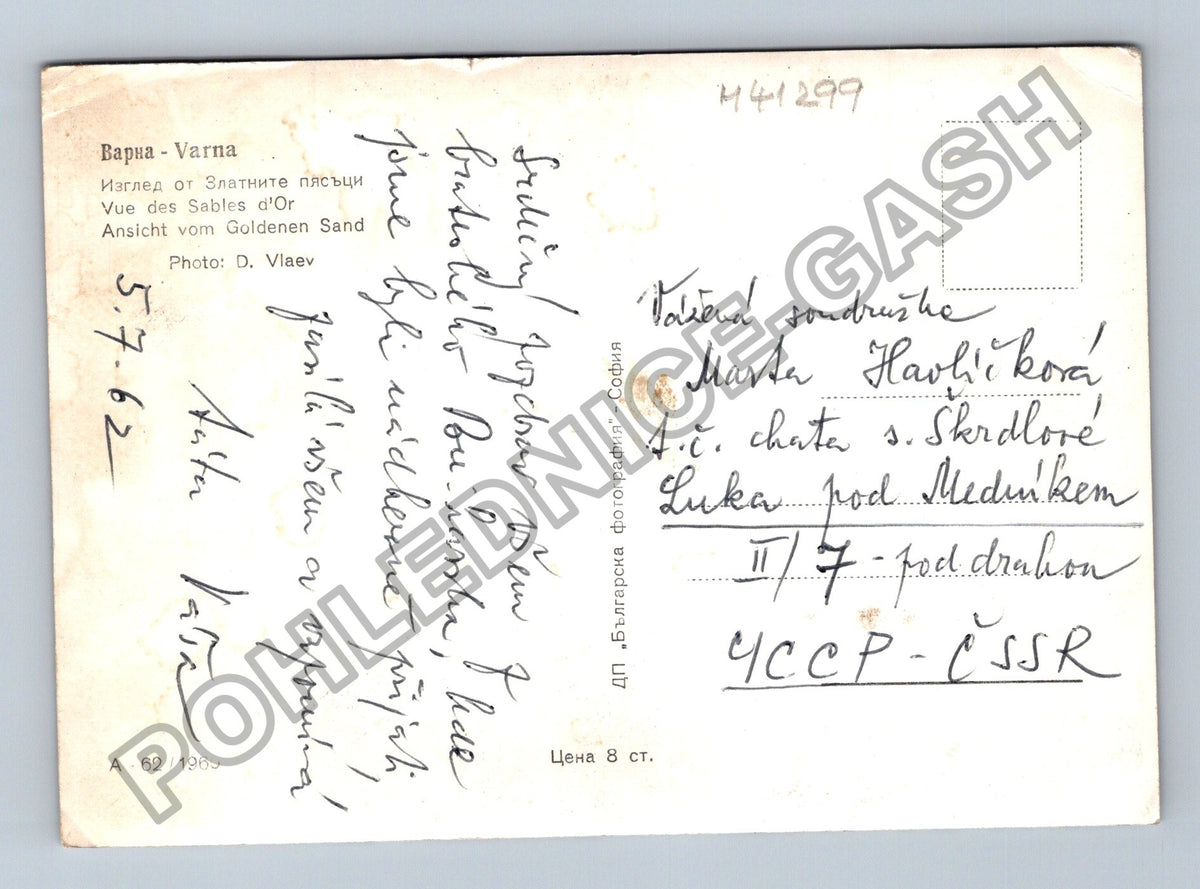 M41299
Варна - Varna
Изглед от Златните пясъци
Vue des Sables d'Or
Ansicht vom Goldenen Sand
Photo: D. Vlaev
5.7.62
Srdečný pozdrav všem z
bratského Bulharska, kde
jsme byli nádherně přijati,
všem a vzpomíná
Vážená soudružka
Marta Havlíčková
t.č. chata s. Škrdlové
Luka pod Medníkem
II/7 - pod drahou
ЧССР - ČSSR
ДП „Българска фотография" - София
Цена 8 ст.
A - 62/1960
POHLEDNICE-GASH